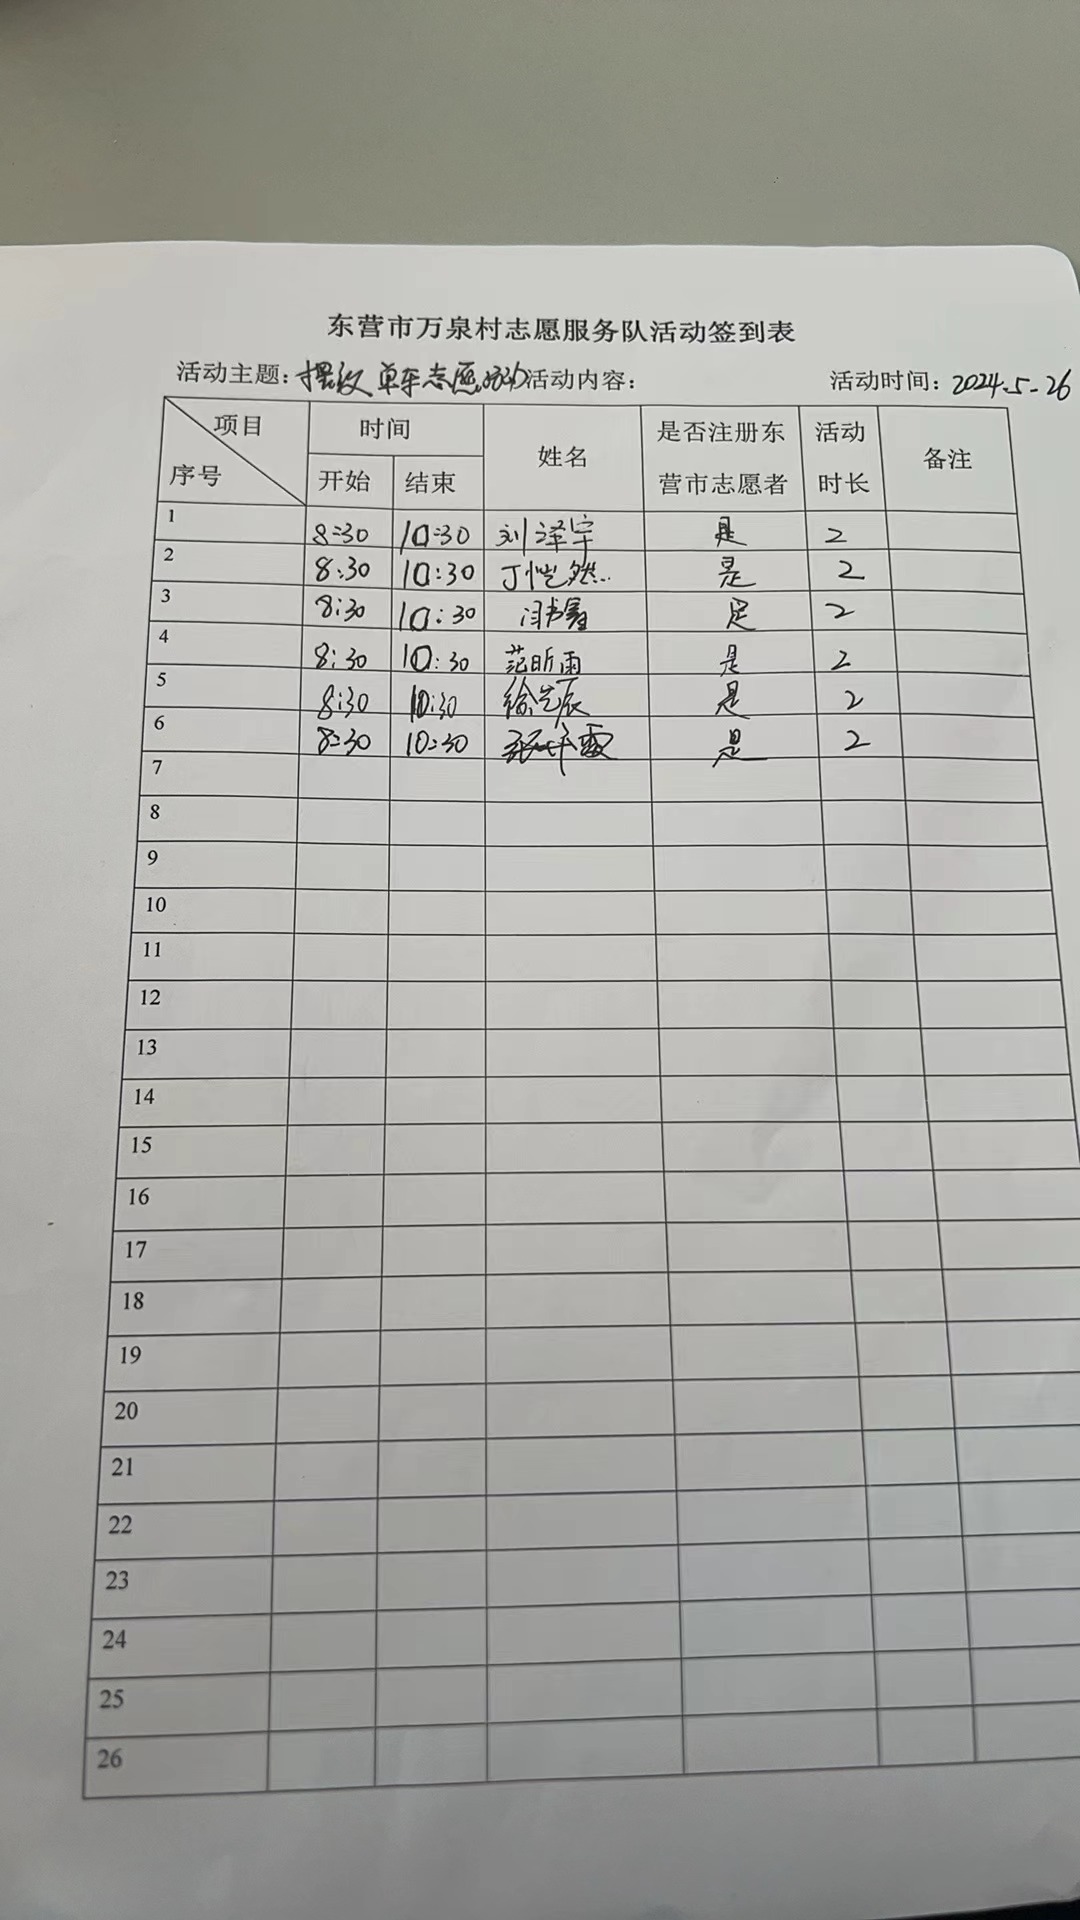 东营市万泉村志愿服务队活动签到表
活动主题：摆放单车志愿活动 活动内容： 活动时间：2024.5-26
项目 时间 姓名 是否注册东 活动 备注
序号 开始 结束 营市志愿者 时长
1 8:30 10:30 刘泽宇 是 2
2 8:30 10:30 丁恺然 是 2
3 8:30 10:30 是 2
4 8:30 10:30 范昕雨 是 2
5 8:30 10:30 徐艺辰 是 2
6 8:30 10:30 是 2
7
8
9
10
11
12
13
14
15
16
17
18
19
20
21
22
23
24
25
26